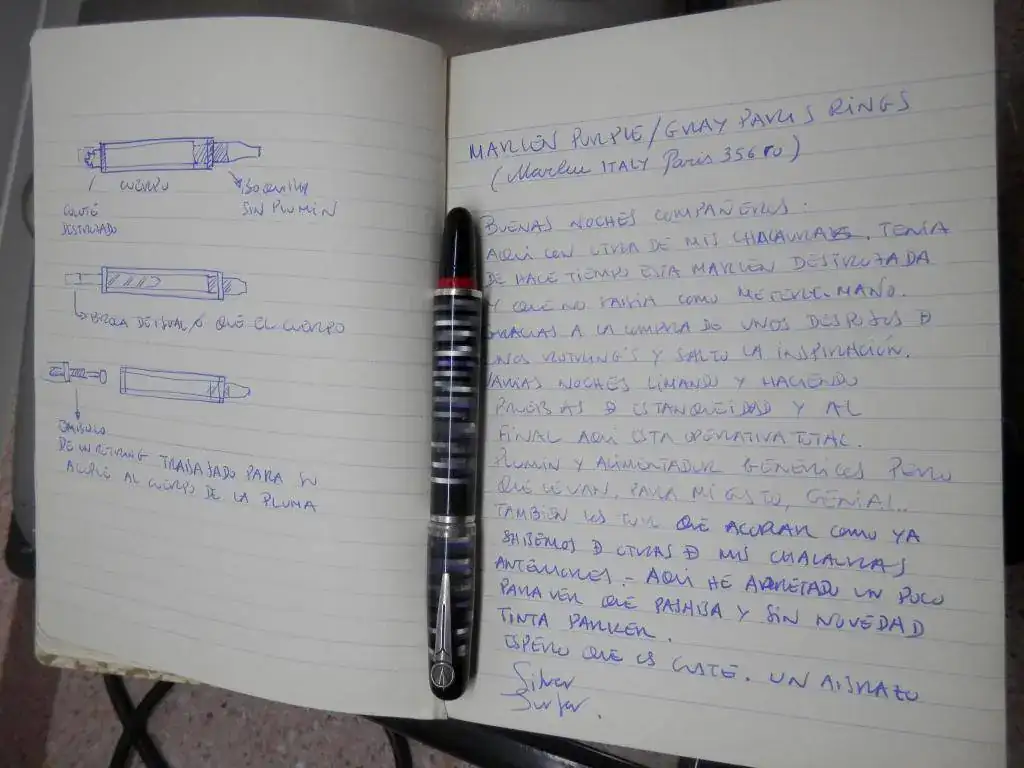 CUERPO
BOQUILLA
SIN PLUMIN
CULOTE
DESTROZADO
BROCA DE IGUAL Ø QUE EL CUERPO
EMBOLO
DE UN ROTRING TRABAJADO PARA SU
ACOPLE AL CUERPO DE LA PLUMA
MARLEN PURPLE/GRAY PARIS RINGS
(Marlen ITALY Paris 356 )
BUENAS NOCHES COMPAÑEROS:
AQUI CON OTRA DE MIS CHALAURAS. TENIA
DE HACE TIEMPO ESTA MARLEN DESTROZADA
Y QUE NO SABIA COMO METERLE MANO.
GRACIAS A LA COMPRA DE UNOS DESPOJOS D
UNOS ROTRING'S Y SALTO LA INSPIRACIÓN.
VARIAS NOCHES LIMANDO Y HACIENDO
PRUEBAS D ESTANQUEIDAD Y AL
FINAL AQUI ESTA OPERATIVA TOTAL.
PLUMIN Y ALIMENTADOR GENERICOS PERO
QUE LLEVAN, PARA MI GUSTO, GENIAL..
TAMBIEN QUE ACOPLAR COMO YA
SABEMOS D OTRAS D MIS CHALAURAS
ANTERIORES - AQUI HE APRETADO UN POCO
PARA VER QUE PASABA Y SIN NOVEDAD
TINTA PARKER.
ESPERO QUE OS GUSTE. UN ABRAZO
Silver
Surfer.